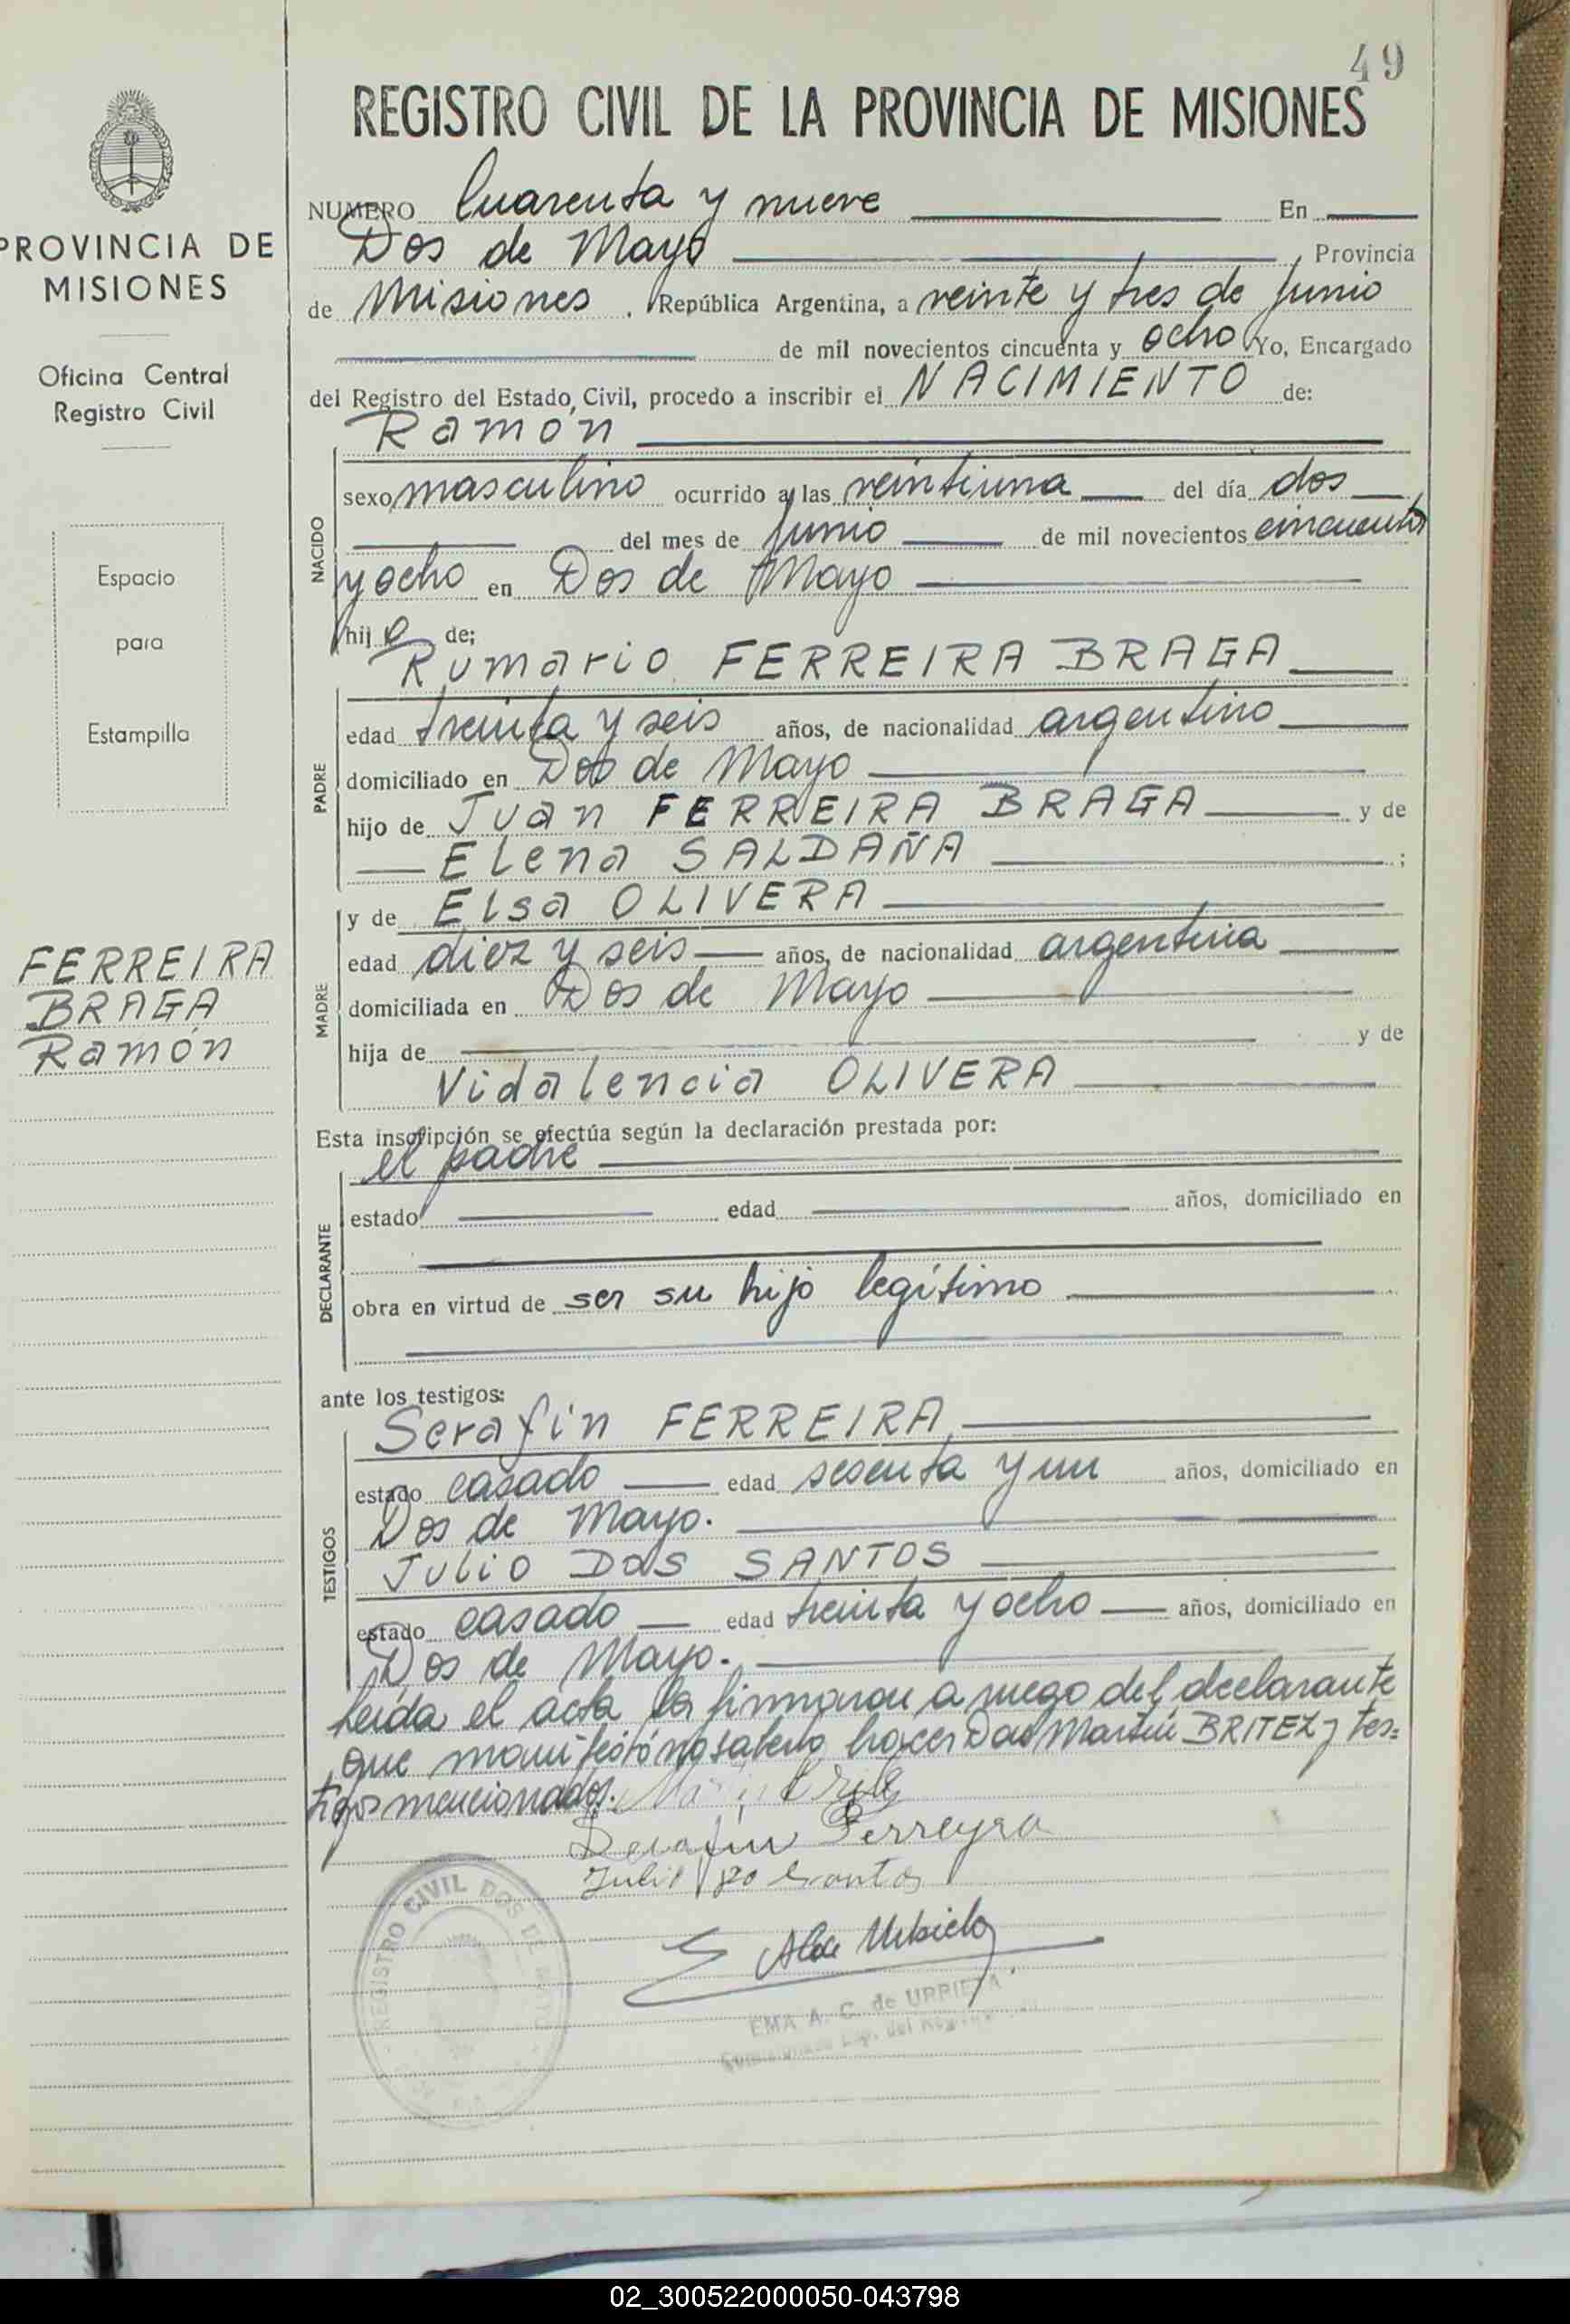 49
REGISTRO CIVIL DE LA PROVINCIA DE MISIONES
PROVINCIA DE
MISIONES
Oficina Central
Registro Civil
Espacio
para
Estampilla
FERREIRA
BRAGA
Ramón
NUMERO Cuarenta y nueve En
Dos de Mayo Provincia
de Misiones, República Argentina, a veinte y tres de Junio
de mil novecientos cincuenta y ocho Yo, Encargado
del Registro del Estado Civil, procedo a inscribir el NACIMIENTO de:
Ramón
NACIDO
sexo masculino ocurrido a las veintiuna del día dos
del mes de Junio de mil novecientos cincuenta
y ocho en Dos de Mayo
hijo de;
Rumario FERREIRA BRAGA
PADRE
edad treinta y seis años, de nacionalidad argentino
domiciliado en Dos de Mayo
hijo de Juan FERREIRA BRAGA y de
Elena SALDAÑA ;
MADRE
y de Elsa OLIVERA
edad diez y seis años, de nacionalidad argentina
domiciliada en Dos de Mayo
hija de y de
Vidalencia OLIVERA
Esta inscripción se efectúa según la declaración prestada por:
el padre
DECLARANTE
estado edad años, domiciliado en
obra en virtud de ser su hijo legítimo
ante los testigos:
Serafín FERREIRA,
TESTIGOS
estado casado edad sesenta y un años, domiciliado en
Dos de Mayo.
Julio Dos SANTOS
estado casado edad treinta y ocho años, domiciliado en
Dos de Mayo.
Leída el acta la firmaron a ruego del declarante
que manifestó no saberlo hacer Don Martín BRITEZ y tes=
tigos mencionados.
Serafin Ferreyra
Julio Santos
REGISTRO CIVIL DOS DE MAYO
EMA A. C. de URRIETA
02_300522000050-043798